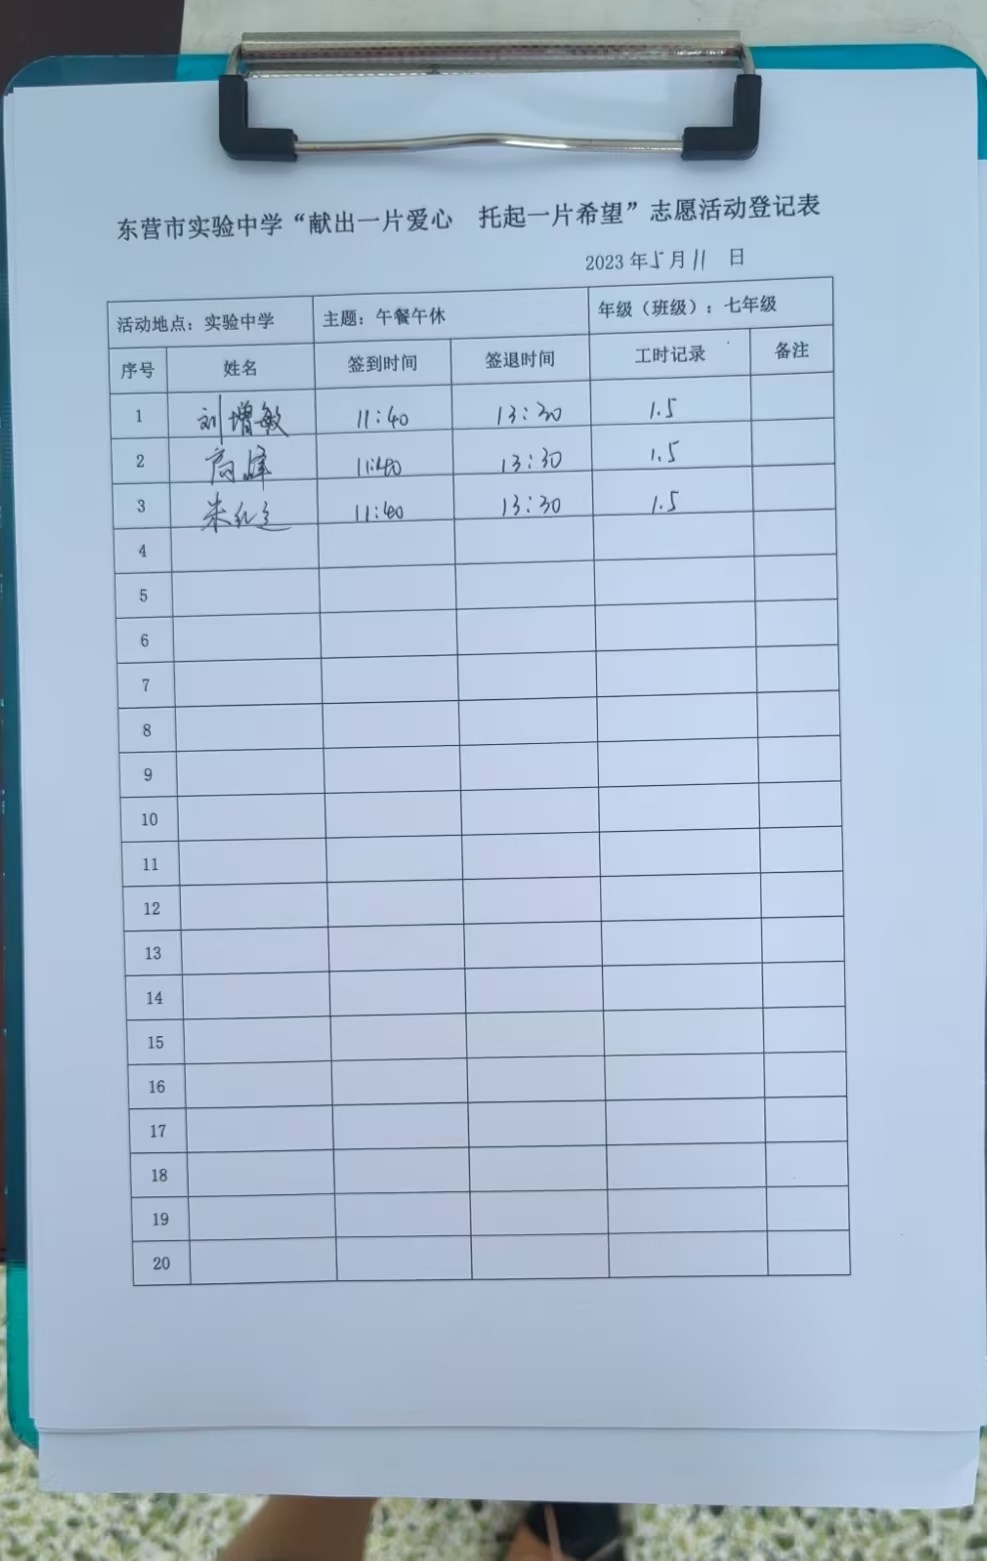 东营市实验中学“献出一片爱心 托起一片希望”志愿活动登记表
2023 年 5 月 11 日
活动地点：实验中学 主题：午餐午休 年级（班级）：七年级
序号 姓名 签到时间 签退时间 工时记录 备注
1 刘增敏 11:40 13:30 1.5
2 高峰 11:40 13:30 1.5
3 11:40 13:30 1.5
4
5
6
7
8
9
10
11
12
13
14
15
16
17
18
19
20